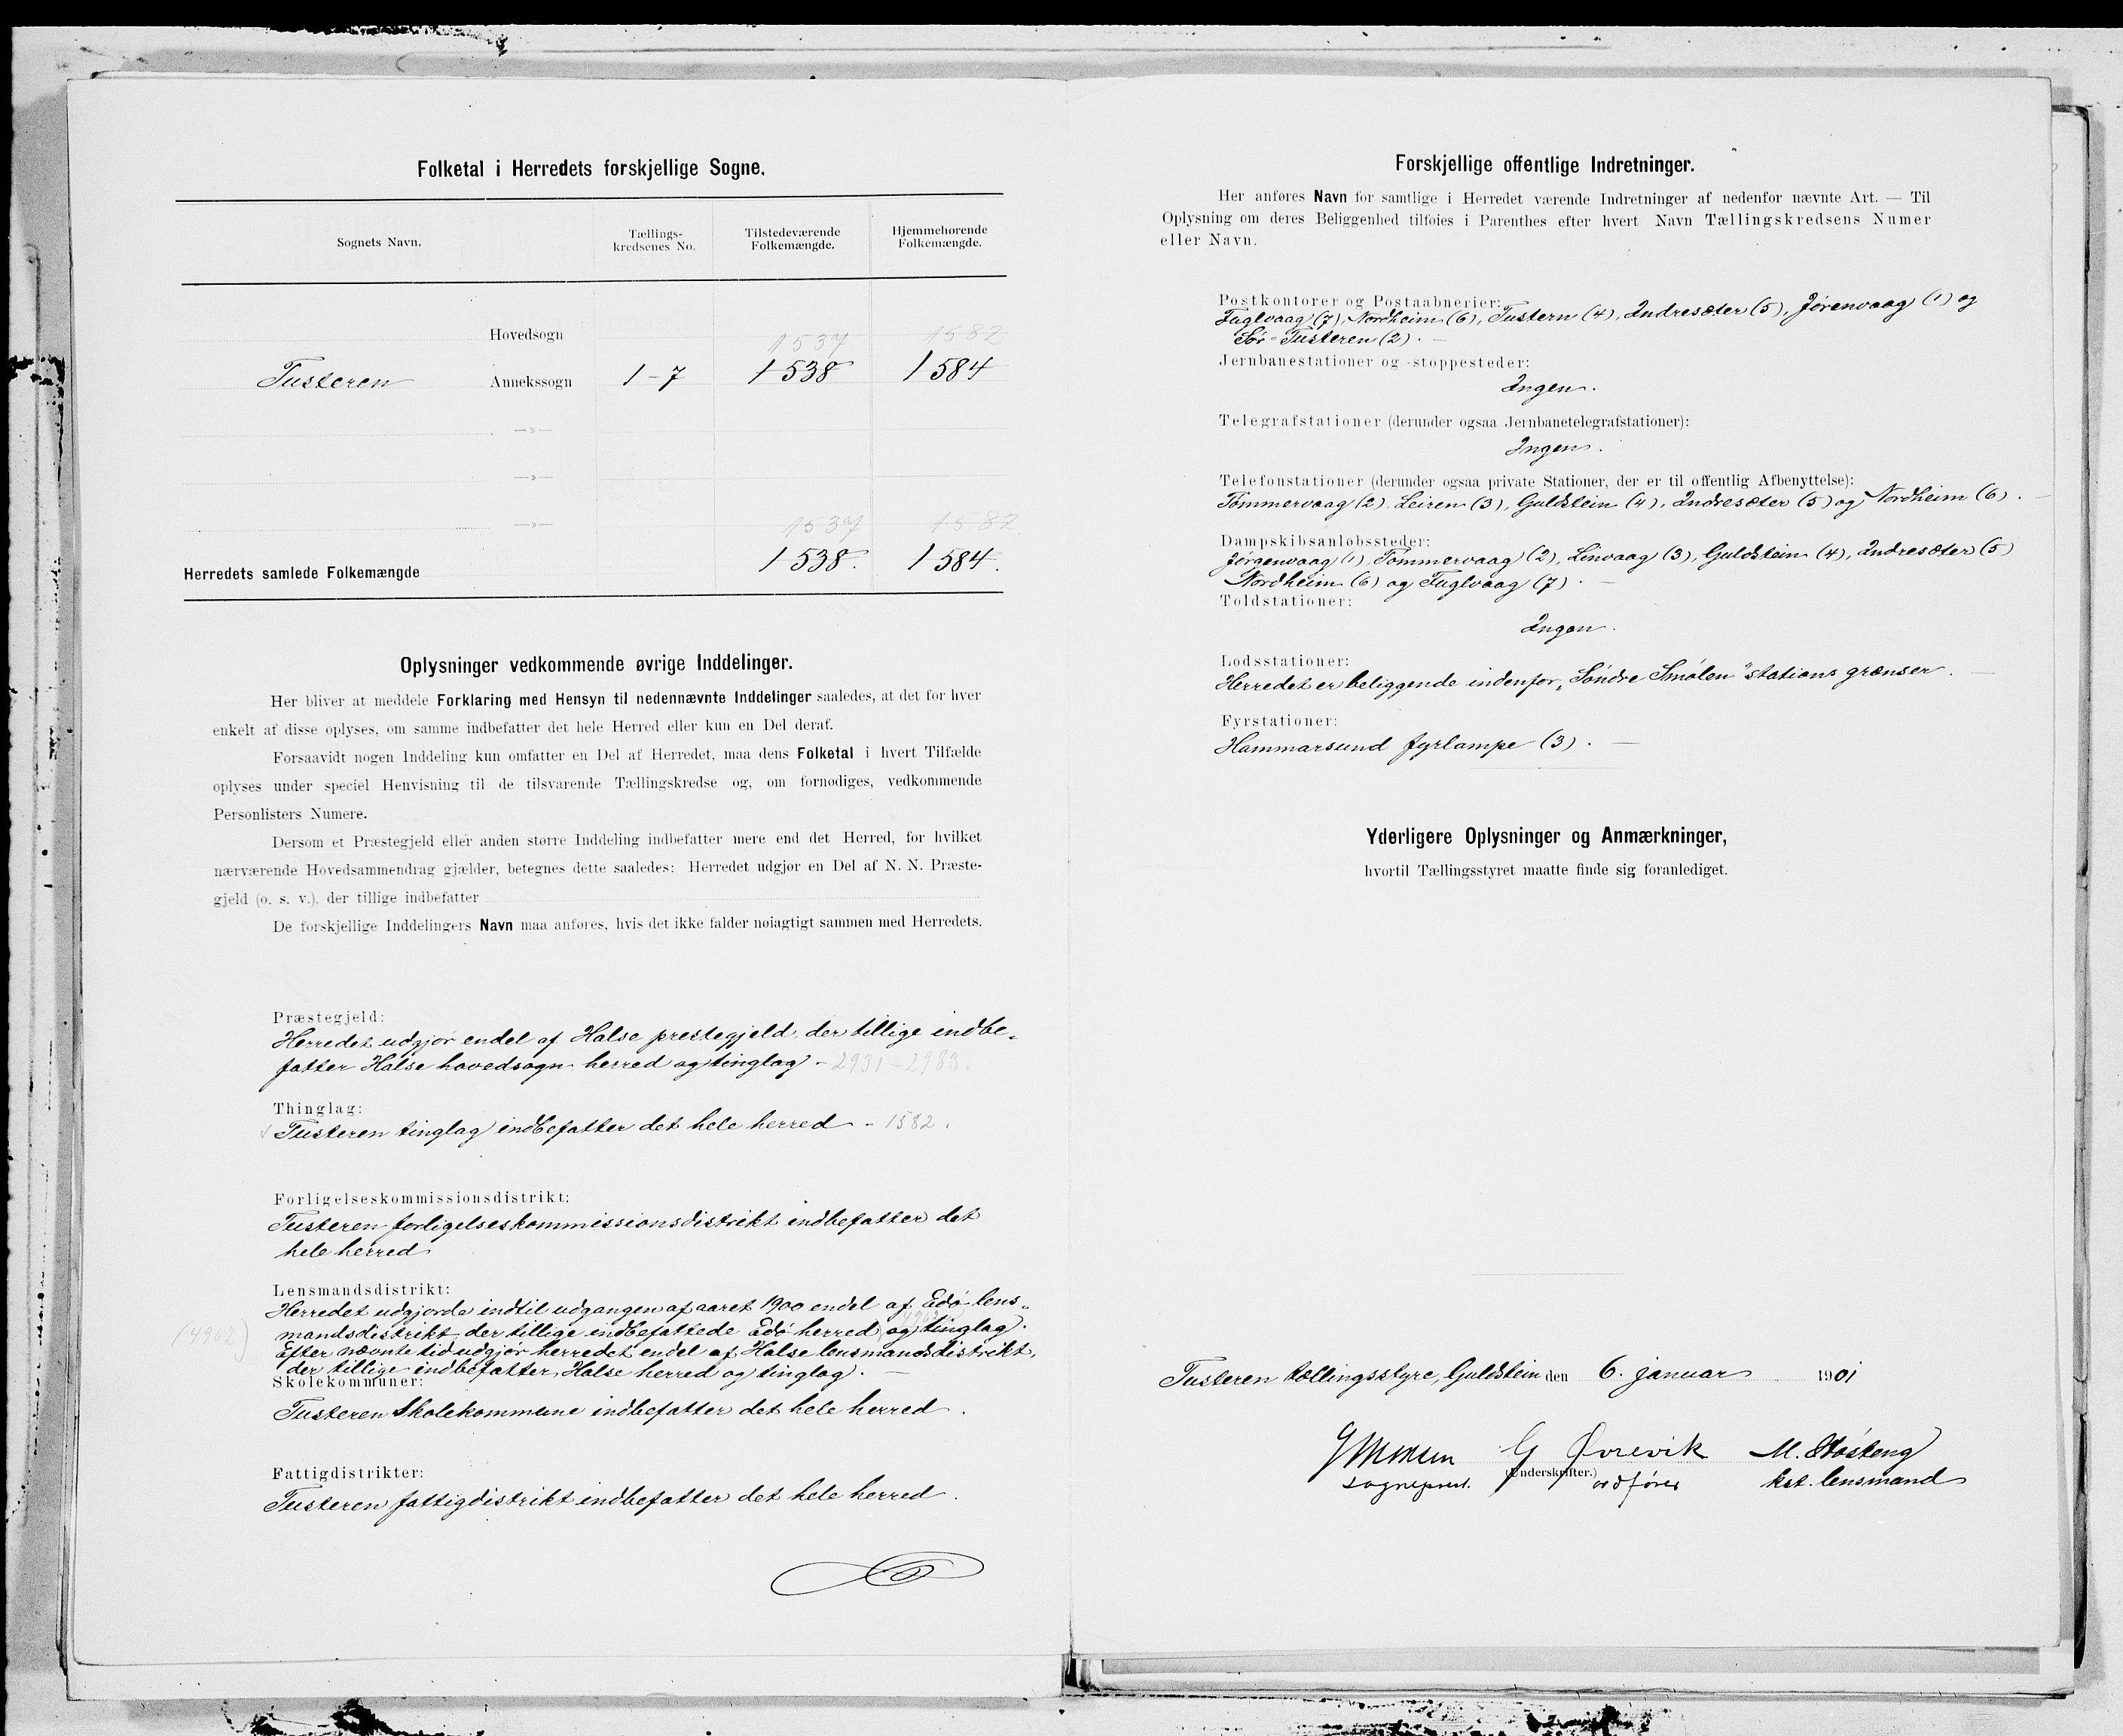 Folketal i Herredets forskjellige Sogne.
Sognets Navn. Tællings-kredsenes No. Tilstedeværende Folkemængde. Hjemmehørende Folkemængde.
Hovedsogn 1537 1582
Tusteren Annekssogn 1-7 1538 1584
—»—
—»—
—»— 1537 1582
Herredets samlede Folkemængde 1538. 1584.
Oplysninger vedkommende øvrige Inddelinger.
Her bliver at meddele Forklaring med Hensyn til nedennævnte Inddelinger saaledes, at det for hver
enkelt af disse oplyses, om samme indbefatter det hele Herred eller kun en Del deraf.
Forsaavidt nogen Inddeling kun omfatter en Del af Herredet, maa dens Folketal i hvert Tilfælde
oplyses under speciel Henvisning til de tilsvarende Tællingskredse og, om fornødiges, vedkommende
Personlisters Numere.
Dersom et Præstegjeld eller anden større Inddeling indbefatter mere end det Herred, for hvilket
nærværende Hovedsammendrag gjælder, betegnes dette saaledes: Herredet udgjør en Del af N. N. Præste-
gjeld (o. s. v.), der tillige indbefatter
De forskjellige Inddelingers Navn maa anføres, hvis det ikke falder nøiagtigt sammen med Herredets.
Præstegjeld:
Herredet udgjør endel af Halse prestegjeld, der tillige indbe-
fatter Halse hovedsogn herred og tinglag - 2931 - 2983.
Thinglag:
Tusteren tinglag indbefatter det hele herred - 1582.
Forligelseskommissionsdistrikt:
Tusteren forligelseskommissionsdistrikt indbefatter det
hele herred
Lensmandsdistrikt:
Herredet udgjorde indtil udgangen af aaret 1900 endel af Edø lens-
(4962) mandsdistrikt, der tillige indbefattede Edø herred og tinglag.
Efter nævnte tid udgjør herredet endel af Halse lensmandsdistrikt,
der tillige indbefatter Halse herred og tinglag. —
Skolekommuner:
Tusteren Skolekommune indbefatter det hele herred.
Fattigdistrikter:
Tusteren fattigdistrikt indbefatter det hele herred.
Forskjellige offentlige Indretninger.
Her anføres Navn for samtlige i Herredet værende Indretninger af nedenfor nævnte Art. — Til
Oplysning om deres Beliggenhed tilføies i Parenthes efter hvert Navn Tællingskredsens Numer
eller Navn.
Postkontorer og Postaabnerier:
Fuglvaag (7), Nordheim (6), Tustern (4), Indresæter (5), Jørenvaag (1) og
Sør-Tusteren (2). —
Jernbanestationer og -stoppesteder:
Ingen.
Telegrafstationer (derunder ogsaa Jernbanetelegrafstationer):
Ingen.
Telefonstationer (derunder ogsaa private Stationer, der er til offentlig Afbenyttelse):
Tømmervaag (2), Leiren (3), Guldstein (4), Indresæter (5) og Nordheim (6). —
Dampskibsanløbssteder:
Jørgenvaag (1), Tømmervaag (2), Linvaag (3), Guldstein (4), Indresæter (5)
Nordheim (6) og Fuglvaag (7). —
Toldstationer:
Ingen.
Lodsstationer:
Herredet er beliggende indenfor „Søndre Smølen" stations grænser. —
Fyrstationer:
Hammarsund fyrlampe (3). —
Yderligere Oplysninger og Anmærkninger,
hvortil Tællingsstyret maatte finde sig foranlediget.
Tusteren tællingsstyre, Guldstein den 6. januar 1901
G Ørrevik M. Støsteng
(Underskrifter.)
sogneprest. ordfører kst. lensmand